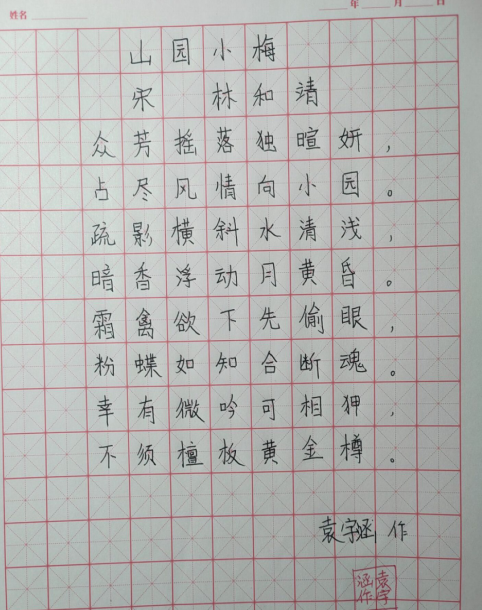 姓名
年 月 日
山园小梅
宋 林和靖
众芳摇落独暄妍，
占尽风情向小园。
疏影横斜水清浅，
暗香浮动月黄昏。
霜禽欲下先偷眼，
粉蝶如知合断魂。
幸有微吟可相狎，
不须檀板黄金樽。
袁字涵 作
袁字
涵作